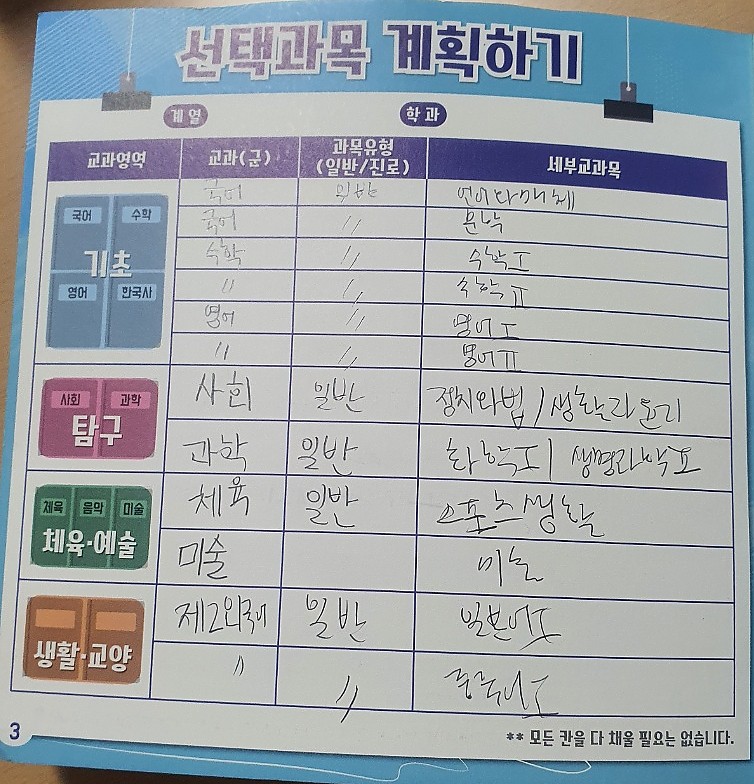 선택과목 계획하기
계열 학과
교과영역 교과(군) 과목유형 (일반/진로) 세부교과목
국어 수학 영어 한국사 기초
국어 일반 언어와매체
국어 〃 문학
수학 〃 수학Ⅰ
〃 〃 수학Ⅱ
영어 〃 영어Ⅰ
〃 〃 영어Ⅱ
사회 과학 탐구
사회 일반 정치와법 / 생활과윤리
과학 일반 화학Ⅰ / 생명과학Ⅰ
체육 음악 미술 체육·예술
체육 일반 스포츠생활
미술 미술
생활·교양
제2외국어 일반 일본어Ⅰ
〃 〃 중국어Ⅰ
3
** 모든 칸을 다 채울 필요는 없습니다.